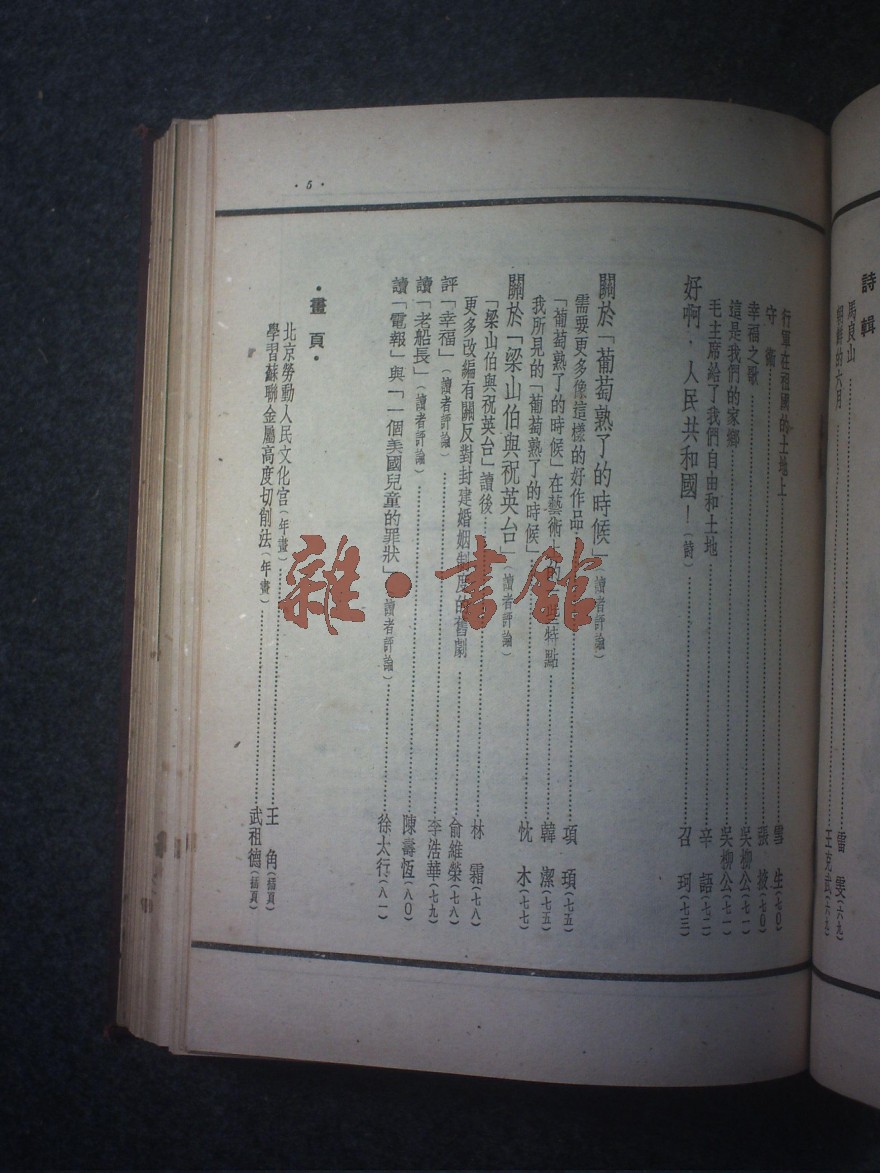 詩輯
馬良山……雷雯(六九)
朝鮮的六月……王克武(六九)
·5·
行軍在祖國的土地上……雪生(七〇)
守衛……張掖(七〇)
幸福之歌……吳柳公(七一)
這是我們的家鄉……吳柳公(七一)
毛主席給了我們自由和土地……辛語(七二)
好啊,人民共和國!(詩)……召珂(七三)
關於「葡萄熟了的時候」(讀者評論)
需要更多像這樣的好作品……項頊(七五)
「葡萄熟了的時候」在藝術上的一些特點……韓潔(七五)
我所見的「葡萄熟了的時候」……忱木(七七)
關於「梁山伯與祝英台」(讀者評論)
「梁山伯與祝英台」讀後……林霜(七八)
更多改編有關反對封建婚姻制度的舊劇……俞維榮(七八)
評「幸福」(讀者評論)……李浩華(七九)
讀「老船長」(讀者評論)……陳壽恆(八〇)
讀「電報」與「一個美國兒童的罪狀」(讀者評論)……徐太行(八一)
·畫頁·
北京勞動人民文化宮(年畫)……王角(插頁)
學習蘇聯金屬高度切削法(年畫)……武祖德(插頁)
雜·書館